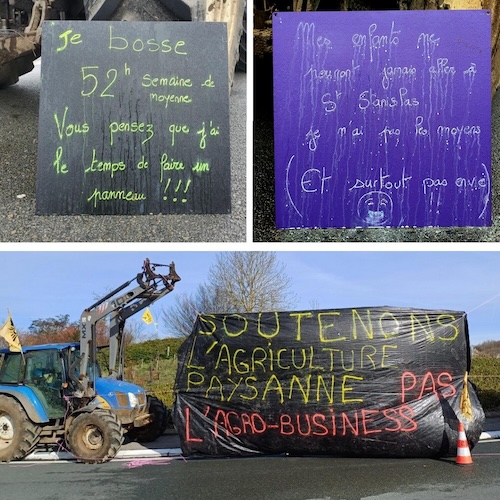 Je bosse
52h semaine de
moyenne
Vous pensez que j'ai
le temps de faire un
panneau !!!
Mes enfants ne
pourront jamais aller à
St Stanislas
je n'ai pas les moyens
(Et surtout pas envie)
SOUTENONS
L'AGRICULTURE
PAYSANNE PAS
L'AGRO-BUSINESS